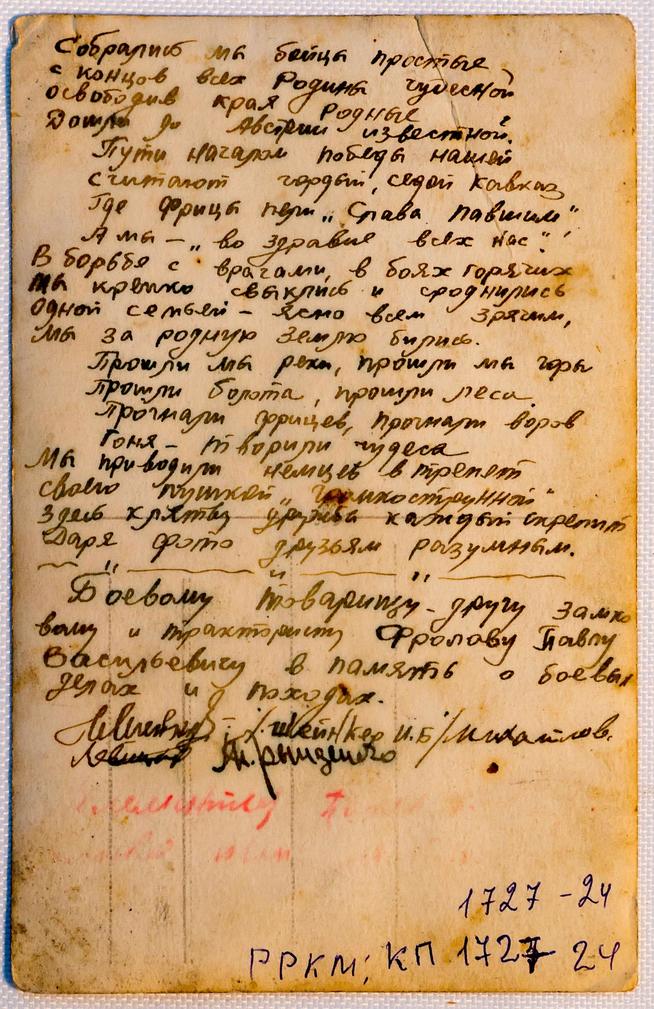 Собрались мы бойцы простые
с концов всех Родины чудесной
освободив края родные
Дошли до Австрии известной.
Пути началом победы нашей
считают гордый, седой Кавказ
Где фрицы пели „Слава павшим"
А мы – „во здравие всех нас".
В борьбе с врагами, в боях горячих
мы крепко свыклись и сроднились
одной семьей – ясно всем зрячим,
мы за родную землю бились.
Прошли мы реки, прошли мы горы
прошли болота, прошли леса.
Прогнали фрицев, прогнали воров
Гоня – творили чудеса
Мы приводили немцев в трепет
своею пушкой „громкострунной"
здесь клятву дружбы каждый скрепит
Даря фото друзьям разумным.
Боевому товарищу-другу замко
вому и трактористу Фролову Павлу
Васильевичу в память о боевых
делах и походах.
/Шейнкер И.Б/ Михайлов.
1727 - 24
РРКМ; КП 1727 24